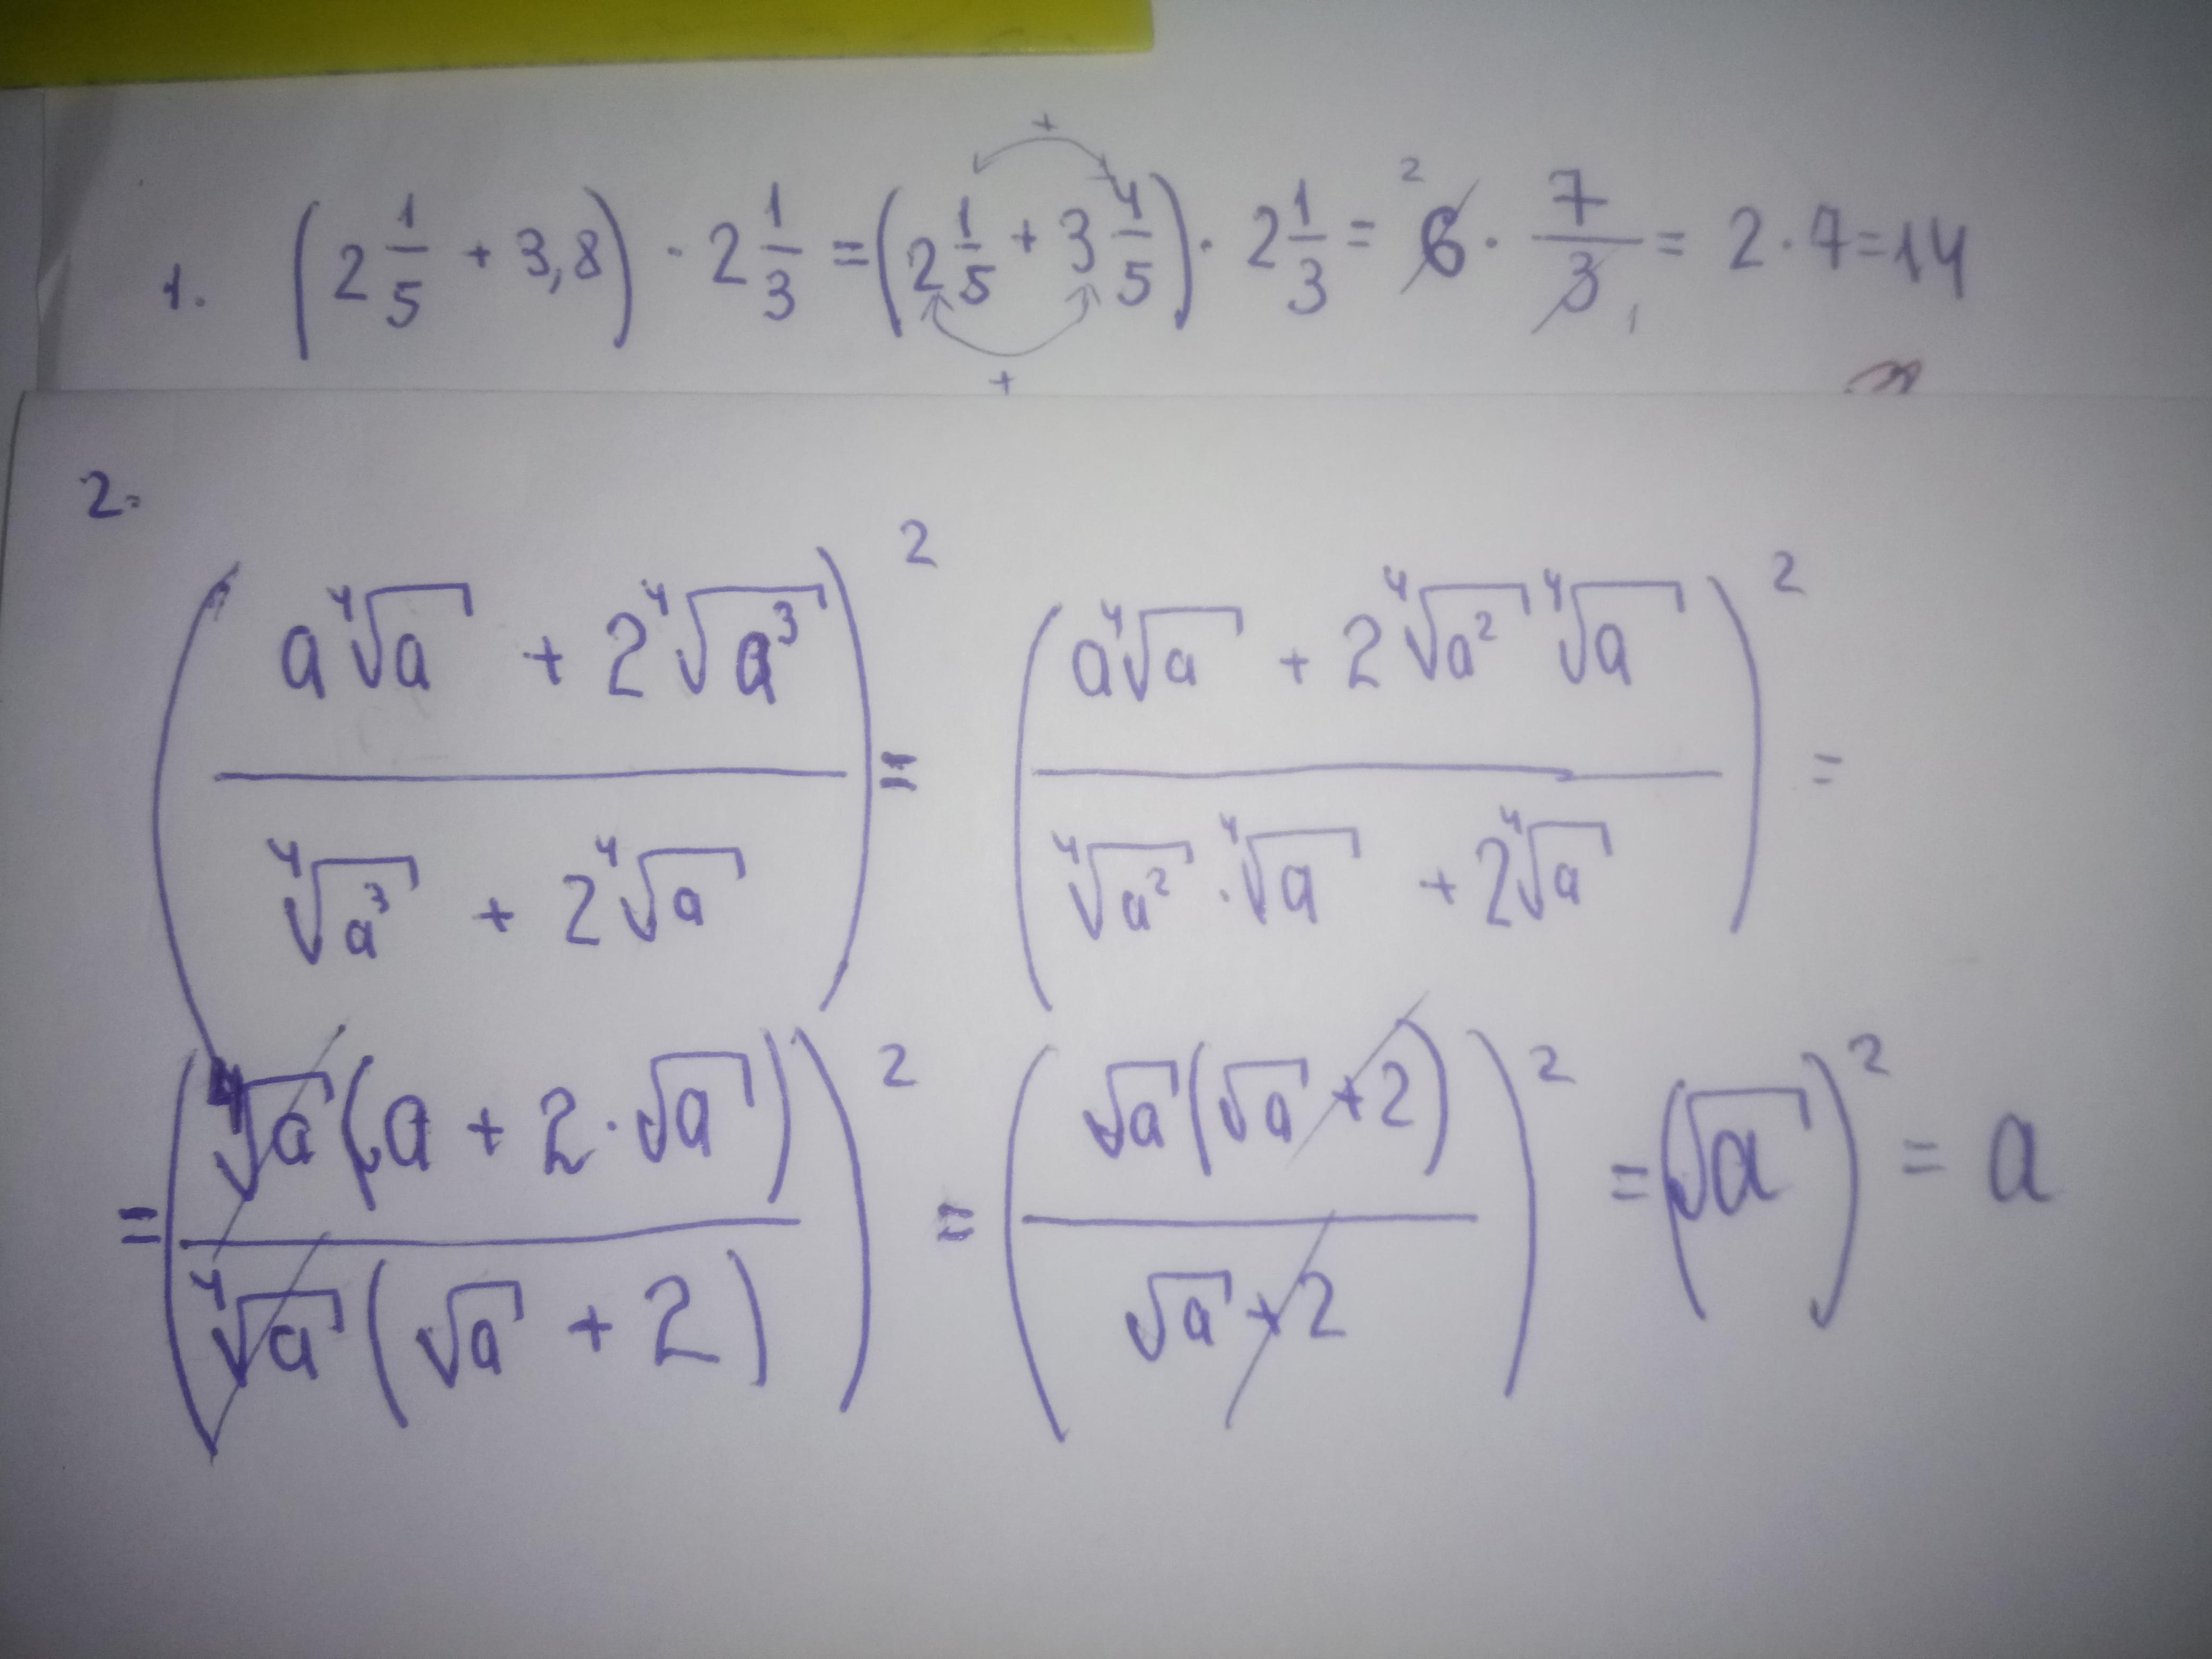 1. (2 1/5 + 3,8) · 2 1/3 = (2 1/5 + 3 4/5) · 2 1/3 = 6 · 7/3 = 2 · 7 = 14
2.
((a ⁴√a + 2 ⁴√a³) / (⁴√a³ + 2 ⁴√a))² = ((a ⁴√a + 2 ⁴√a² ⁴√a) / (⁴√a² · ⁴√a + 2 ⁴√a))² =
= ((⁴√a (a + 2 · √a)) / (⁴√a (√a + 2)))² = ((√a (√a + 2)) / (√a + 2))² = (√a)² = a